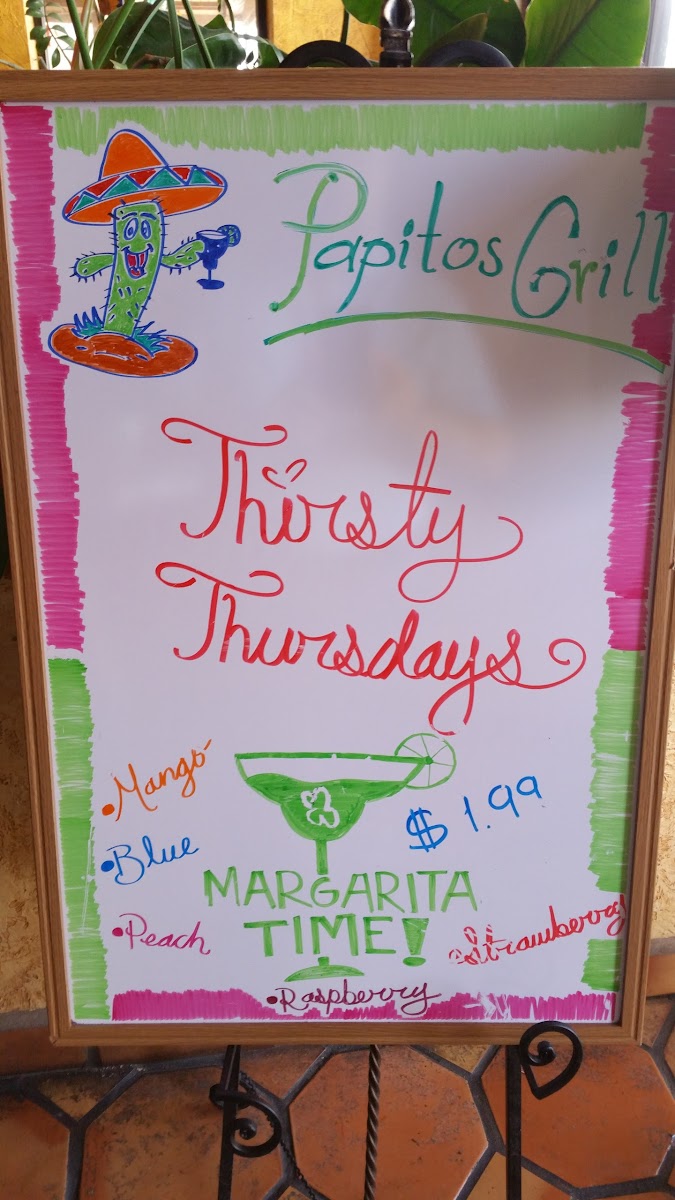 Papitos Grill
Thirsty
Thursdays
• Mango
• Blue
$1.99
MARGARITA
TIME!
• Peach
• Strawberry
• Raspberry